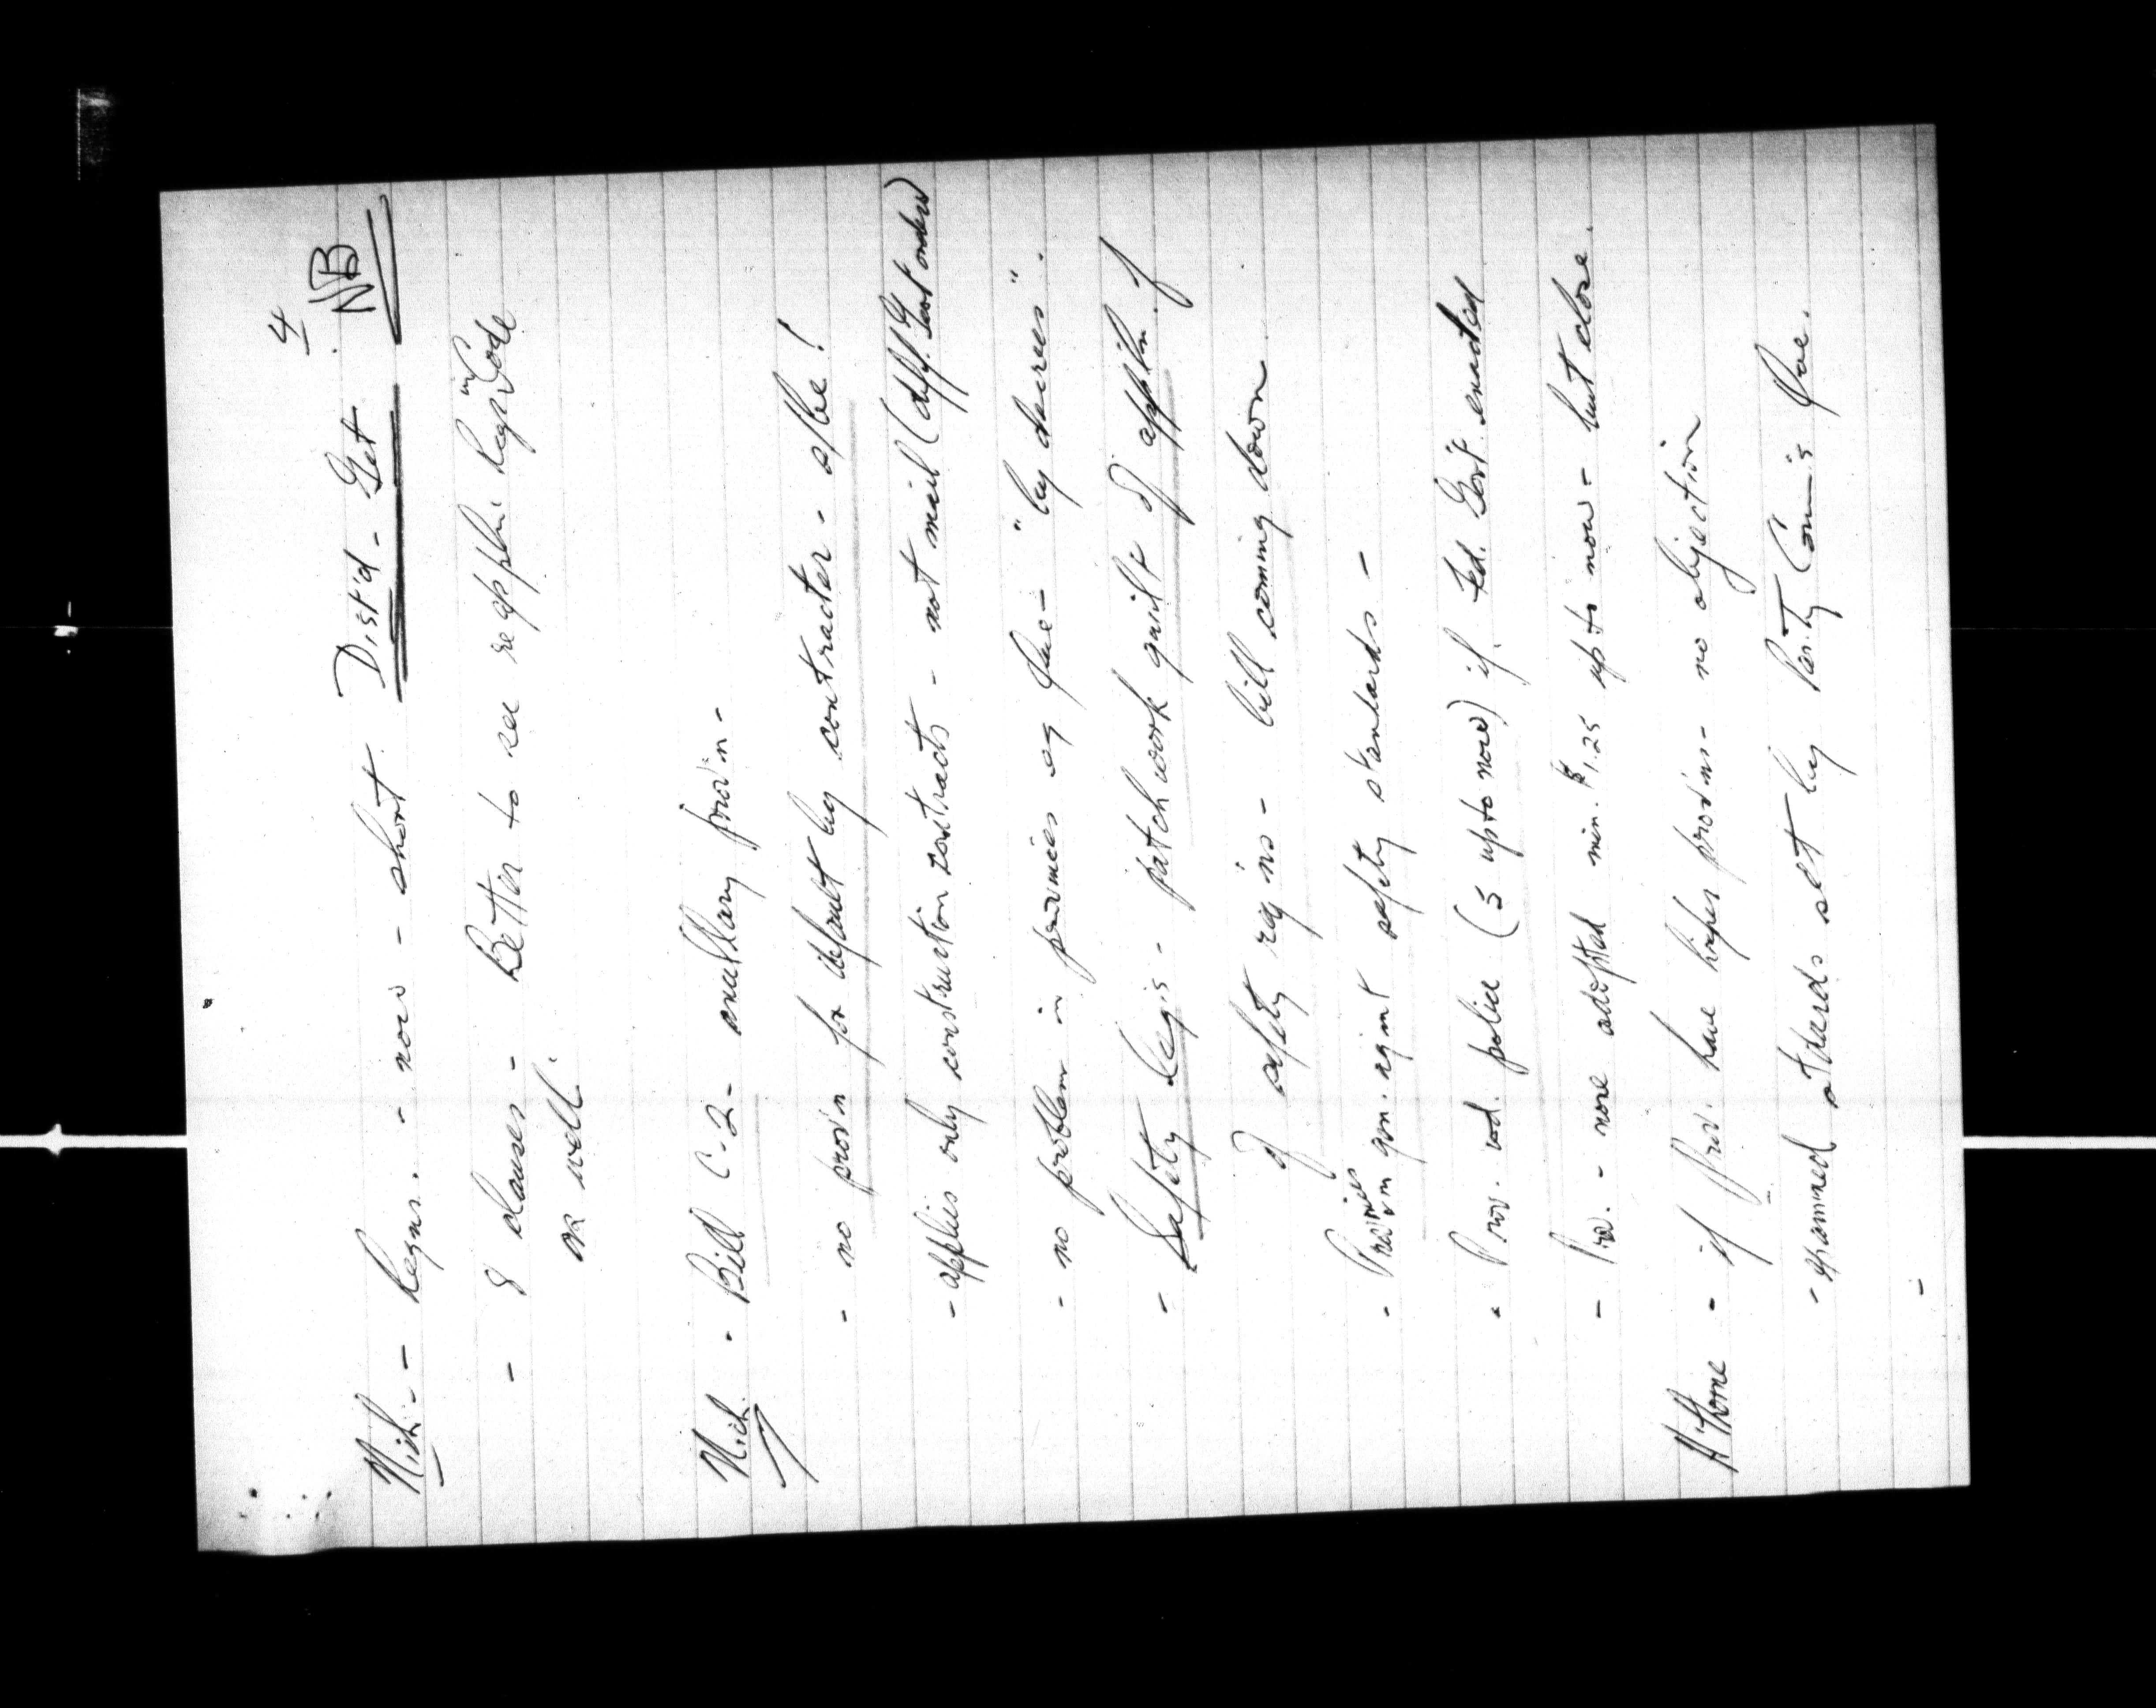 4
Nich. - Regns. - now - short. Dist'd - Get. NB
- 8 clauses - Better to see re appln. Regs in Code
as well.
Nich. - Bill C-2 - ancillary prov'n -
- no prov'n for default by contractor - s/be!
- applies only construction contracts - not mail (diff. Govt orders)
- no problem in provinces eg Que - "by decrees".
- Safety Legis - patchwork quilt of appln. of
of safety reg'ns - bill coming down
- Provinces in gen. agmt safety standards -
- Prov. ind. police (3 up to now) if Fed. Gov't. enacted
- Prov. - none adopted min. $1.25 up to now - but close.
H'thorne - if prov. have higher prov'ns - no objection
- examined st'dards set by Parity Comm's Que.
-